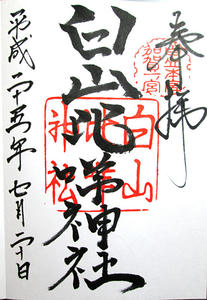 奉拝
白山本宮
加賀一ノ宮
白山比咩神社
白山
比咩
神社
平成二十五年七月二十日